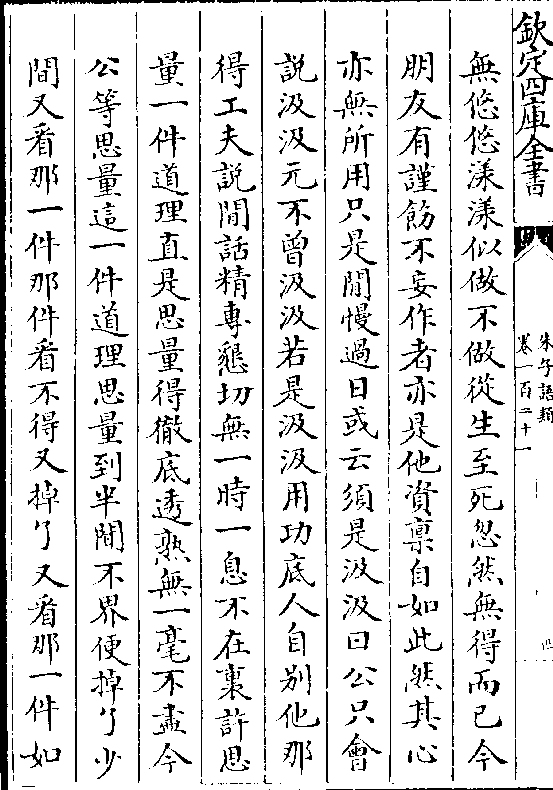 欽定四庫全書
朱子語類
卷一百二十一
四
無悠悠漾漾似做不做從生至死忽然無得而已今
朋友有謹飭不妄作者亦是他資禀自如此然其心
亦無所用只是閒慢過日或云須是汲汲曰公只會
説汲汲元不曾汲汲若是汲汲用功底人自别他那
得工夫説閒話精專懇切無一時一息不在裏許思
量一件道理直是思量得徹底透熟無一毫不盡今
公等思量這一件道理思量到半間不界便掉了少
間又看那一件那件看不得又掉了又看那一件如